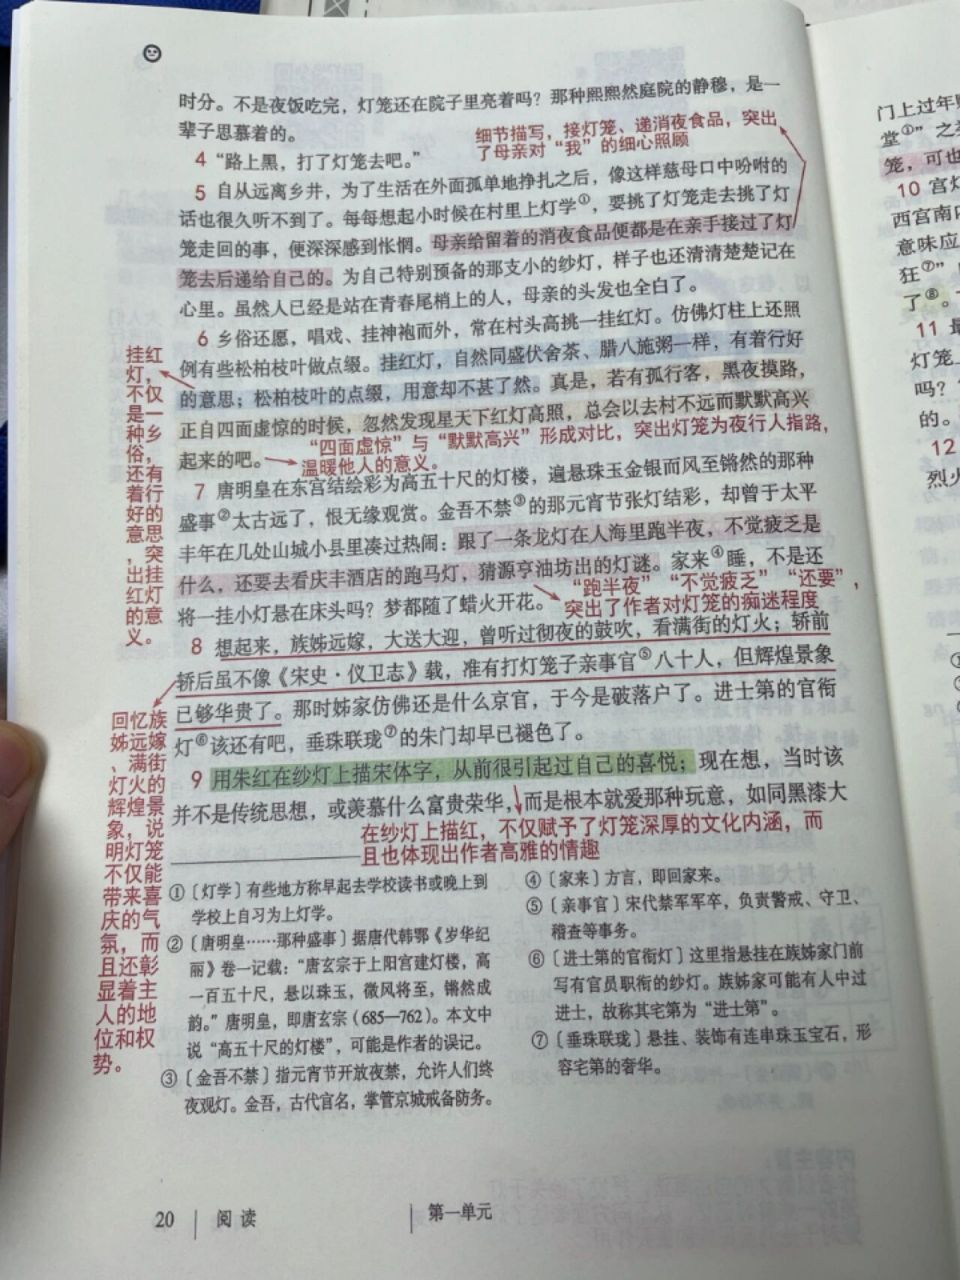 时分。不是夜饭吃完，灯笼还在院子里亮着吗？那种熙熙然庭院的静穆，是一
辈子思慕着的。
细节描写，接灯笼、递消夜食品，突出
了母亲对“我”的细心照顾
4 “路上黑，打了灯笼去吧。”
5 自从远离乡井，为了生活在外面孤单地挣扎之后，像这样慈母口中吩咐的
话也很久听不到了。每每想起小时候在村里上灯学①，要挑了灯笼走去挑了灯
笼走回的事，便深深感到怅惘。母亲给留着的消夜食品便都是在亲手接过了灯
笼去后递给自己的。为自己特别预备的那支小的纱灯，样子也还清清楚楚记在
心里。虽然人已经是站在青春尾梢上的人，母亲的头发也全白了。
6 乡俗还愿，唱戏、挂神袍而外，常在村头高挑一挂红灯。仿佛灯柱上还照
例有些松柏枝叶做点缀。挂红灯，自然同盛伏舍茶、腊八施粥一样，有着行好
的意思；松柏枝叶的点缀，用意却不甚了然。真是，若有孤行客，黑夜摸路，
正自四面虚惊的时候，忽然发现星天下红灯高照，总会以去村不远而默默高兴
起来的吧。
“四面虚惊”与“默默高兴”形成对比，突出灯笼为夜行人指路，
温暖他人的意义。
挂红
灯，
不仅
是一
种乡
俗，
还有
着行
好的
意思
，突
出挂
红灯
的意
义。
7 唐明皇在东宫结绘彩为高五十尺的灯楼，遍悬珠玉金银而风至锵然的那种
盛事②太古远了，恨无缘观赏。金吾不禁③的那元宵节张灯结彩，却曾于太平
丰年在几处山城小县里凑过热闹：跟了一条龙灯在人海里跑半夜，不觉疲乏是
什么，还要去看庆丰酒店的跑马灯，猜源亨油坊出的灯谜。家来④睡，不是还
将一挂小灯悬在床头吗？梦都随了蜡火开花。
“跑半夜”“不觉疲乏”“还要”，
突出了作者对灯笼的痴迷程度
8 想起来，族姊远嫁，大送大迎，曾听过彻夜的鼓吹，看满街的灯火；轿前
轿后虽不像《宋史·仪卫志》载，准有打灯笼子亲事官⑤八十人，但辉煌景象
已够华贵了。那时姊家仿佛还是什么京官，于今是破落户了。进士第的官衔
灯⑥该还有吧，垂珠联珑⑦的朱门却早已褪色了。
回忆族
姊远嫁
、满街
灯火的
辉煌景
象，说
明灯笼
不仅能
带来喜
庆的气
氛，而
且还彰
显着主
人的地
位和权
势。
9 用朱红在纱灯上描宋体字，从前很引起过自己的喜悦；现在想，当时该
并不是传统思想，或羡慕什么富贵荣华，而是根本就爱那种玩意，如同黑漆大
在纱灯上描红，不仅赋予了灯笼深厚的文化内涵，而
且也体现出作者高雅的情趣
①〔灯学〕有些地方称早起去学校读书或晚上到
学校上自习为上灯学。
②〔唐明皇……那种盛事〕据唐代韩鄂《岁华纪
丽》卷一记载：“唐玄宗于上阳宫建灯楼，高
一百五十尺，悬以珠玉，微风将至，锵然成
韵。”唐明皇，即唐玄宗（685—762）。本文中
说“高五十尺的灯楼”，可能是作者的误记。
③〔金吾不禁〕指元宵节开放夜禁，允许人们终
夜观灯。金吾，古代官名，掌管京城戒备防务。
④〔家来〕方言，即回家来。
⑤〔亲事官〕宋代禁军军卒，负责警戒、守卫、
稽查等事务。
⑥〔进士第的官衔灯〕这里指悬挂在族姊家门前
写有官员职衔的纱灯。族姊家可能有人中过
进士，故称其宅第为“进士第”。
⑦〔垂珠联珑〕悬挂、装饰有连串珠玉宝石，形
容宅第的奢华。
20 阅读
第一单元
门上过年贴
堂①”之
笼，可也
10 宫灯
西宫南内
意味应
狂⑦”
了⑧。
11 最
灯笼
吗？
的。
12
烈火